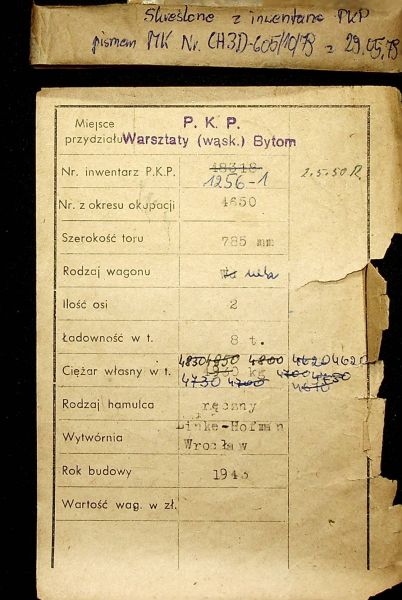 Skreślone z inwentarza PKP
pismem MK Nr. CH3D-605/10/79 z 29.05.79
Miejsce przydziału P. K. P.
Warsztaty (wąsk.) Bytom
Nr. inwentarz P.K.P. 48318 2.5.50 R.
1256-1
Nr. z okresu okupacji 4650
Szerokość toru 785 mm
Rodzaj wagonu
Ilość osi 2
Ładowność w t. 8 t.
4830 4850 4800 4620 4620
Ciężar własny w t. kg 4700
4730 4700 4670
Rodzaj hamulca ręczny
Wytwórnia Linke-Hofman
Wrocław
Rok budowy 1943
Wartość wag. w zł.